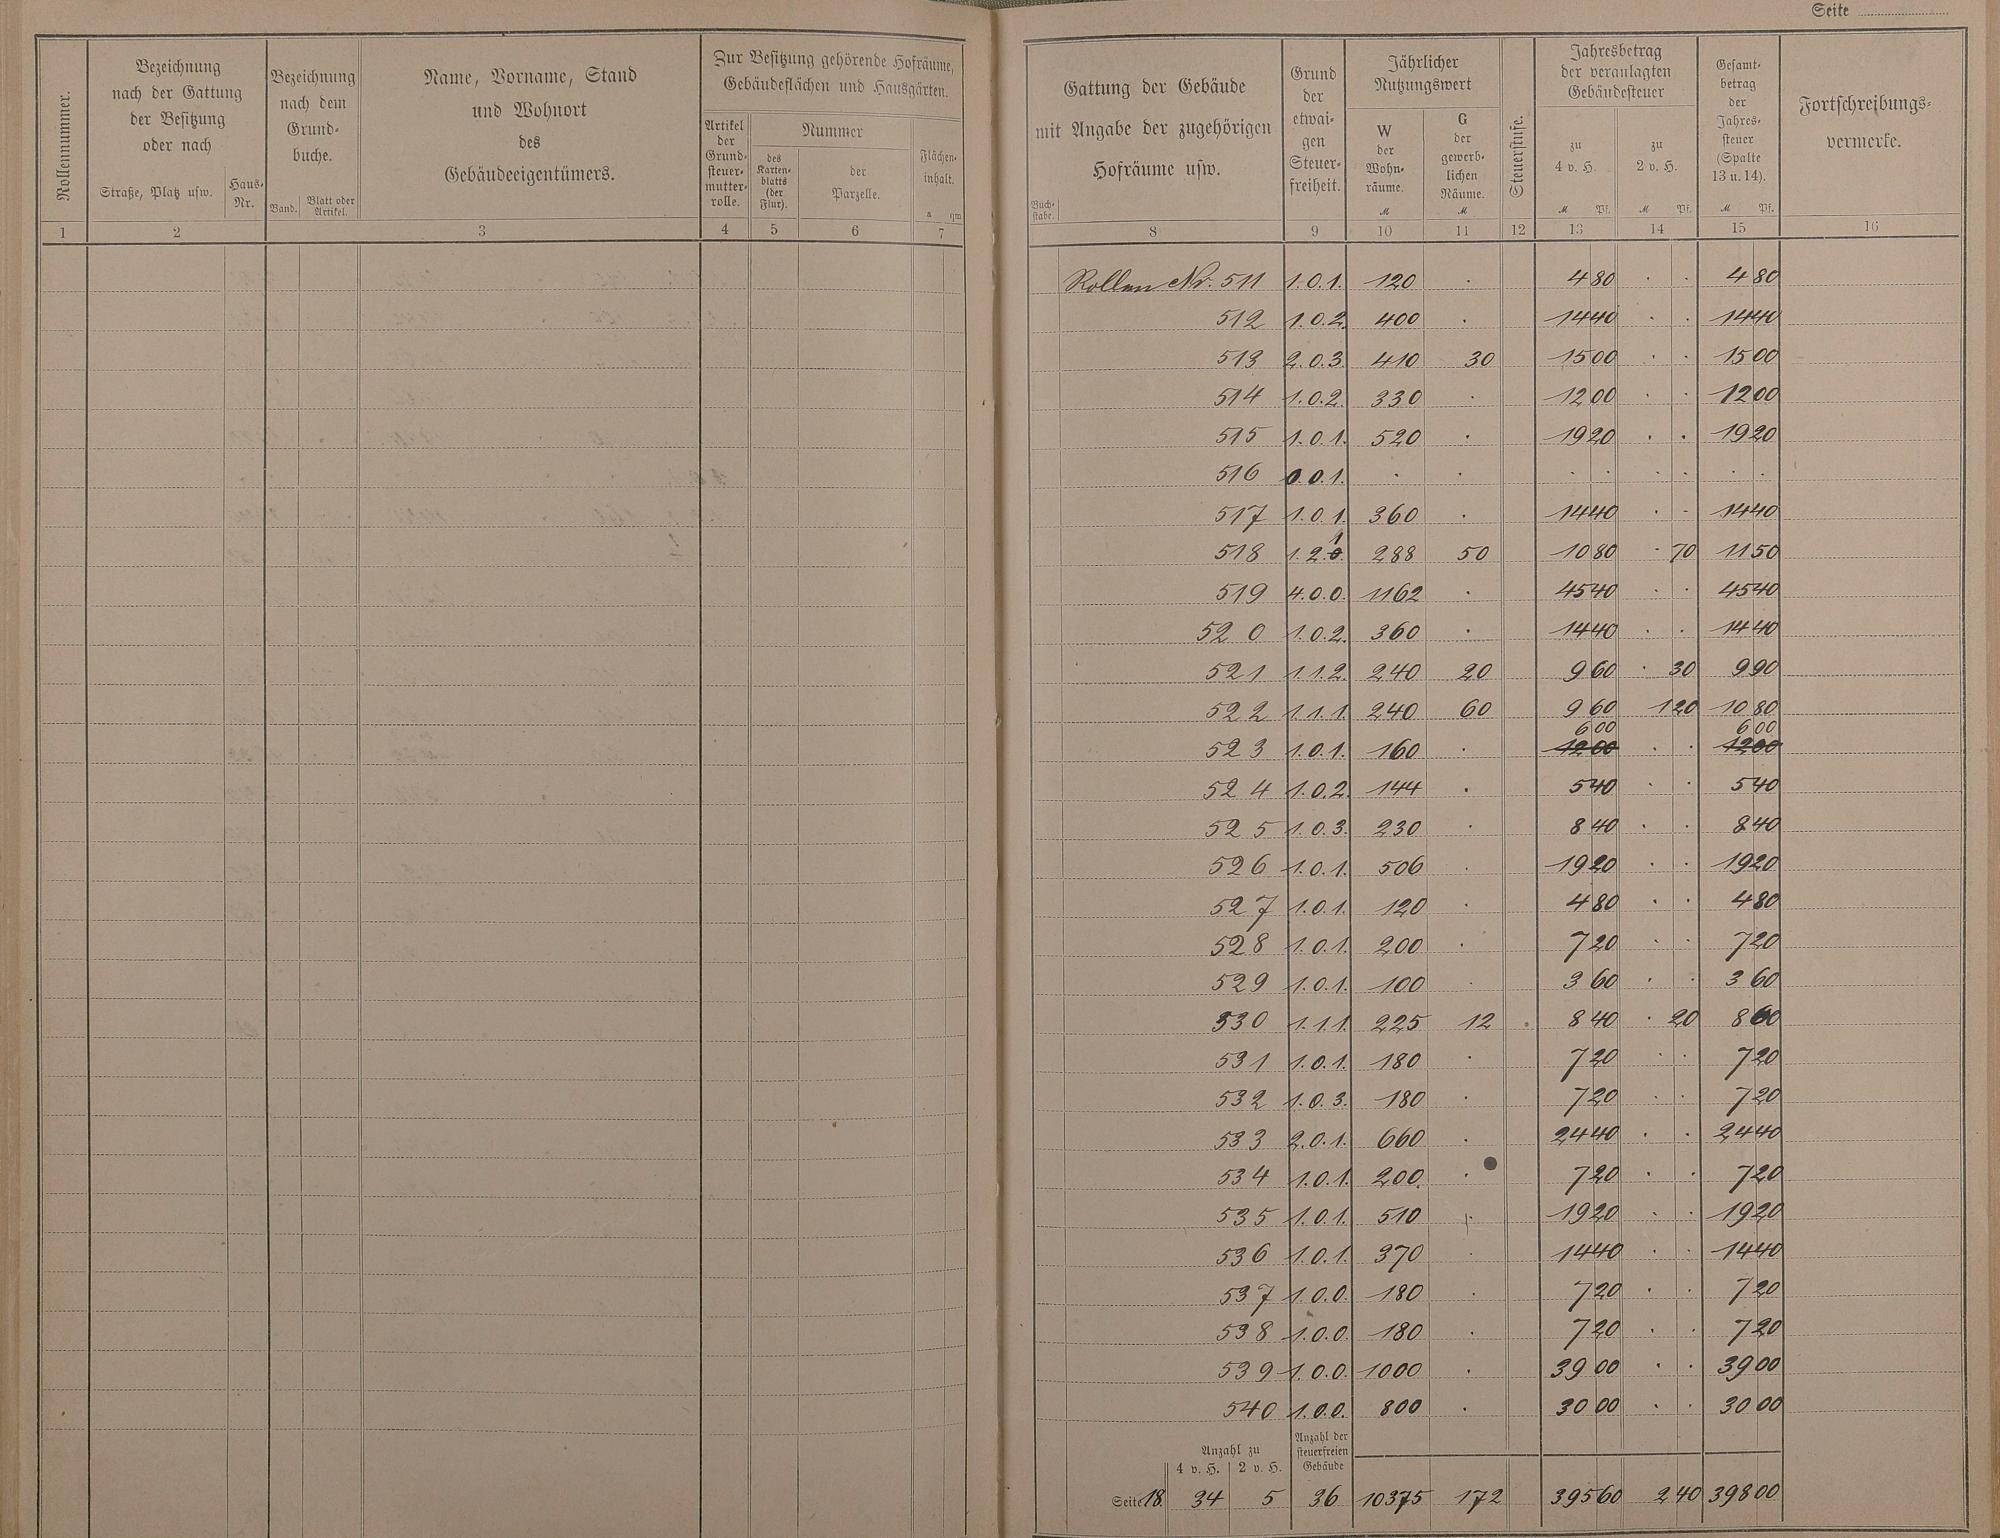 Seite
Rollennummer.
Bezeichnung
nach der Gattung
der Besitzung
oder nach
Straße, Platz usw.
Haus-
Nr.
Bezeichnung
nach dem
Grund-
buche.
Band.
Blatt oder
Artikel.
Name, Vorname, Stand
und Wohnort
des
Gebäudeeigentümers.
Zur Besitzung gehörende Hofräume,
Gebäudeflächen und Hausgärten.
Artikel
der
Grund-
steuer-
mutter-
rolle.
Nummer
des
Karten-
blatts
(der
Flur).
der
Parzelle.
Flächen-
inhalt.
a qm
1 2 3 4 5 6 7
Gattung der Gebäude
mit Angabe der zugehörigen
Hofräume usw.
Buch-
stabe.
Grund
der
etwai-
gen
Steuer-
freiheit.
Jährlicher
Nutzungswert
W
der
Wohn-
räume.
M
G
der
gewerb-
lichen
Räume.
M
Steuerstufe.
Jahresbetrag
der veranlagten
Gebäudesteuer
zu
4 v. H.
M Pf.
zu
2 v. H.
M Pf.
Gesamt-
betrag
der
Jahres-
steuer
(Spalte
13 u. 14).
M Pf.
Fortschreibungs-
vermerke.
8 9 10 11 12 13 14 15 16
Rollen Nr. 511 1.0.1. 120 · 4 80 · · 4 80
512 1.0.2. 400 · 14 40 · · 14 40
513 2.0.3. 410 30 15 00 · · 15 00
514 1.0.2. 330 · 12 00 · · 12 00
515 1.0.1. 520 · 19 20 · · 19 20
516 0.0.1. · · · · · · · ·
517 1.0.1. 360 · 14 40 · · 14 40
1
518 1.2.0. 288 50 10 80 · 70 11 50
519 4.0.0. 1162 · 45 40 · · 45 40
520 1.0.2. 360 · 14 40 · · 14 40
521 1.1.2. 240 20 9 60 · 30 9 90
522 1.1.1. 240 60 9 60 1 20 10 80
6 00 6 00
523 1.0.1. 160 · 12 00 · · 12 00
524 1.0.2. 144 · 5 40 · · 5 40
525 1.0.3. 230 · 8 40 · · 8 40
526 1.0.1. 506 · 19 20 · · 19 20
527 1.0.1. 120 · 4 80 · · 4 80
528 1.0.1. 200 · 7 20 · · 7 20
529 1.0.1. 100 · 3 60 · · 3 60
530 1.1.1. 225 12 8 40 · 20 8 60
531 1.0.1. 180 · 7 20 · · 7 20
532 1.0.3. 180 · 7 20 · · 7 20
533 2.0.1. 660 · 24 40 · · 24 40
534 1.0.1. 200. · 7 20 · · 7 20
535 1.0.1. 510 · 19 20 · · 19 20
536 1.0.1. 370 · 14 40 · · 14 40
537 1.0.0. 180 · 7 20 · · 7 20
538 1.0.0. 180 · 7 20 · · 7 20
539 1.0.0. 1000 · 39 00 · · 39 00
540 1.0.0. 800 · 30 00 · · 30 00
Anzahl zu
4 v. H. 2 v. H.
Anzahl der
steuerfreien
Gebäude
Seite 18 34 5 36 10375 172 395 60 2 40 398 00